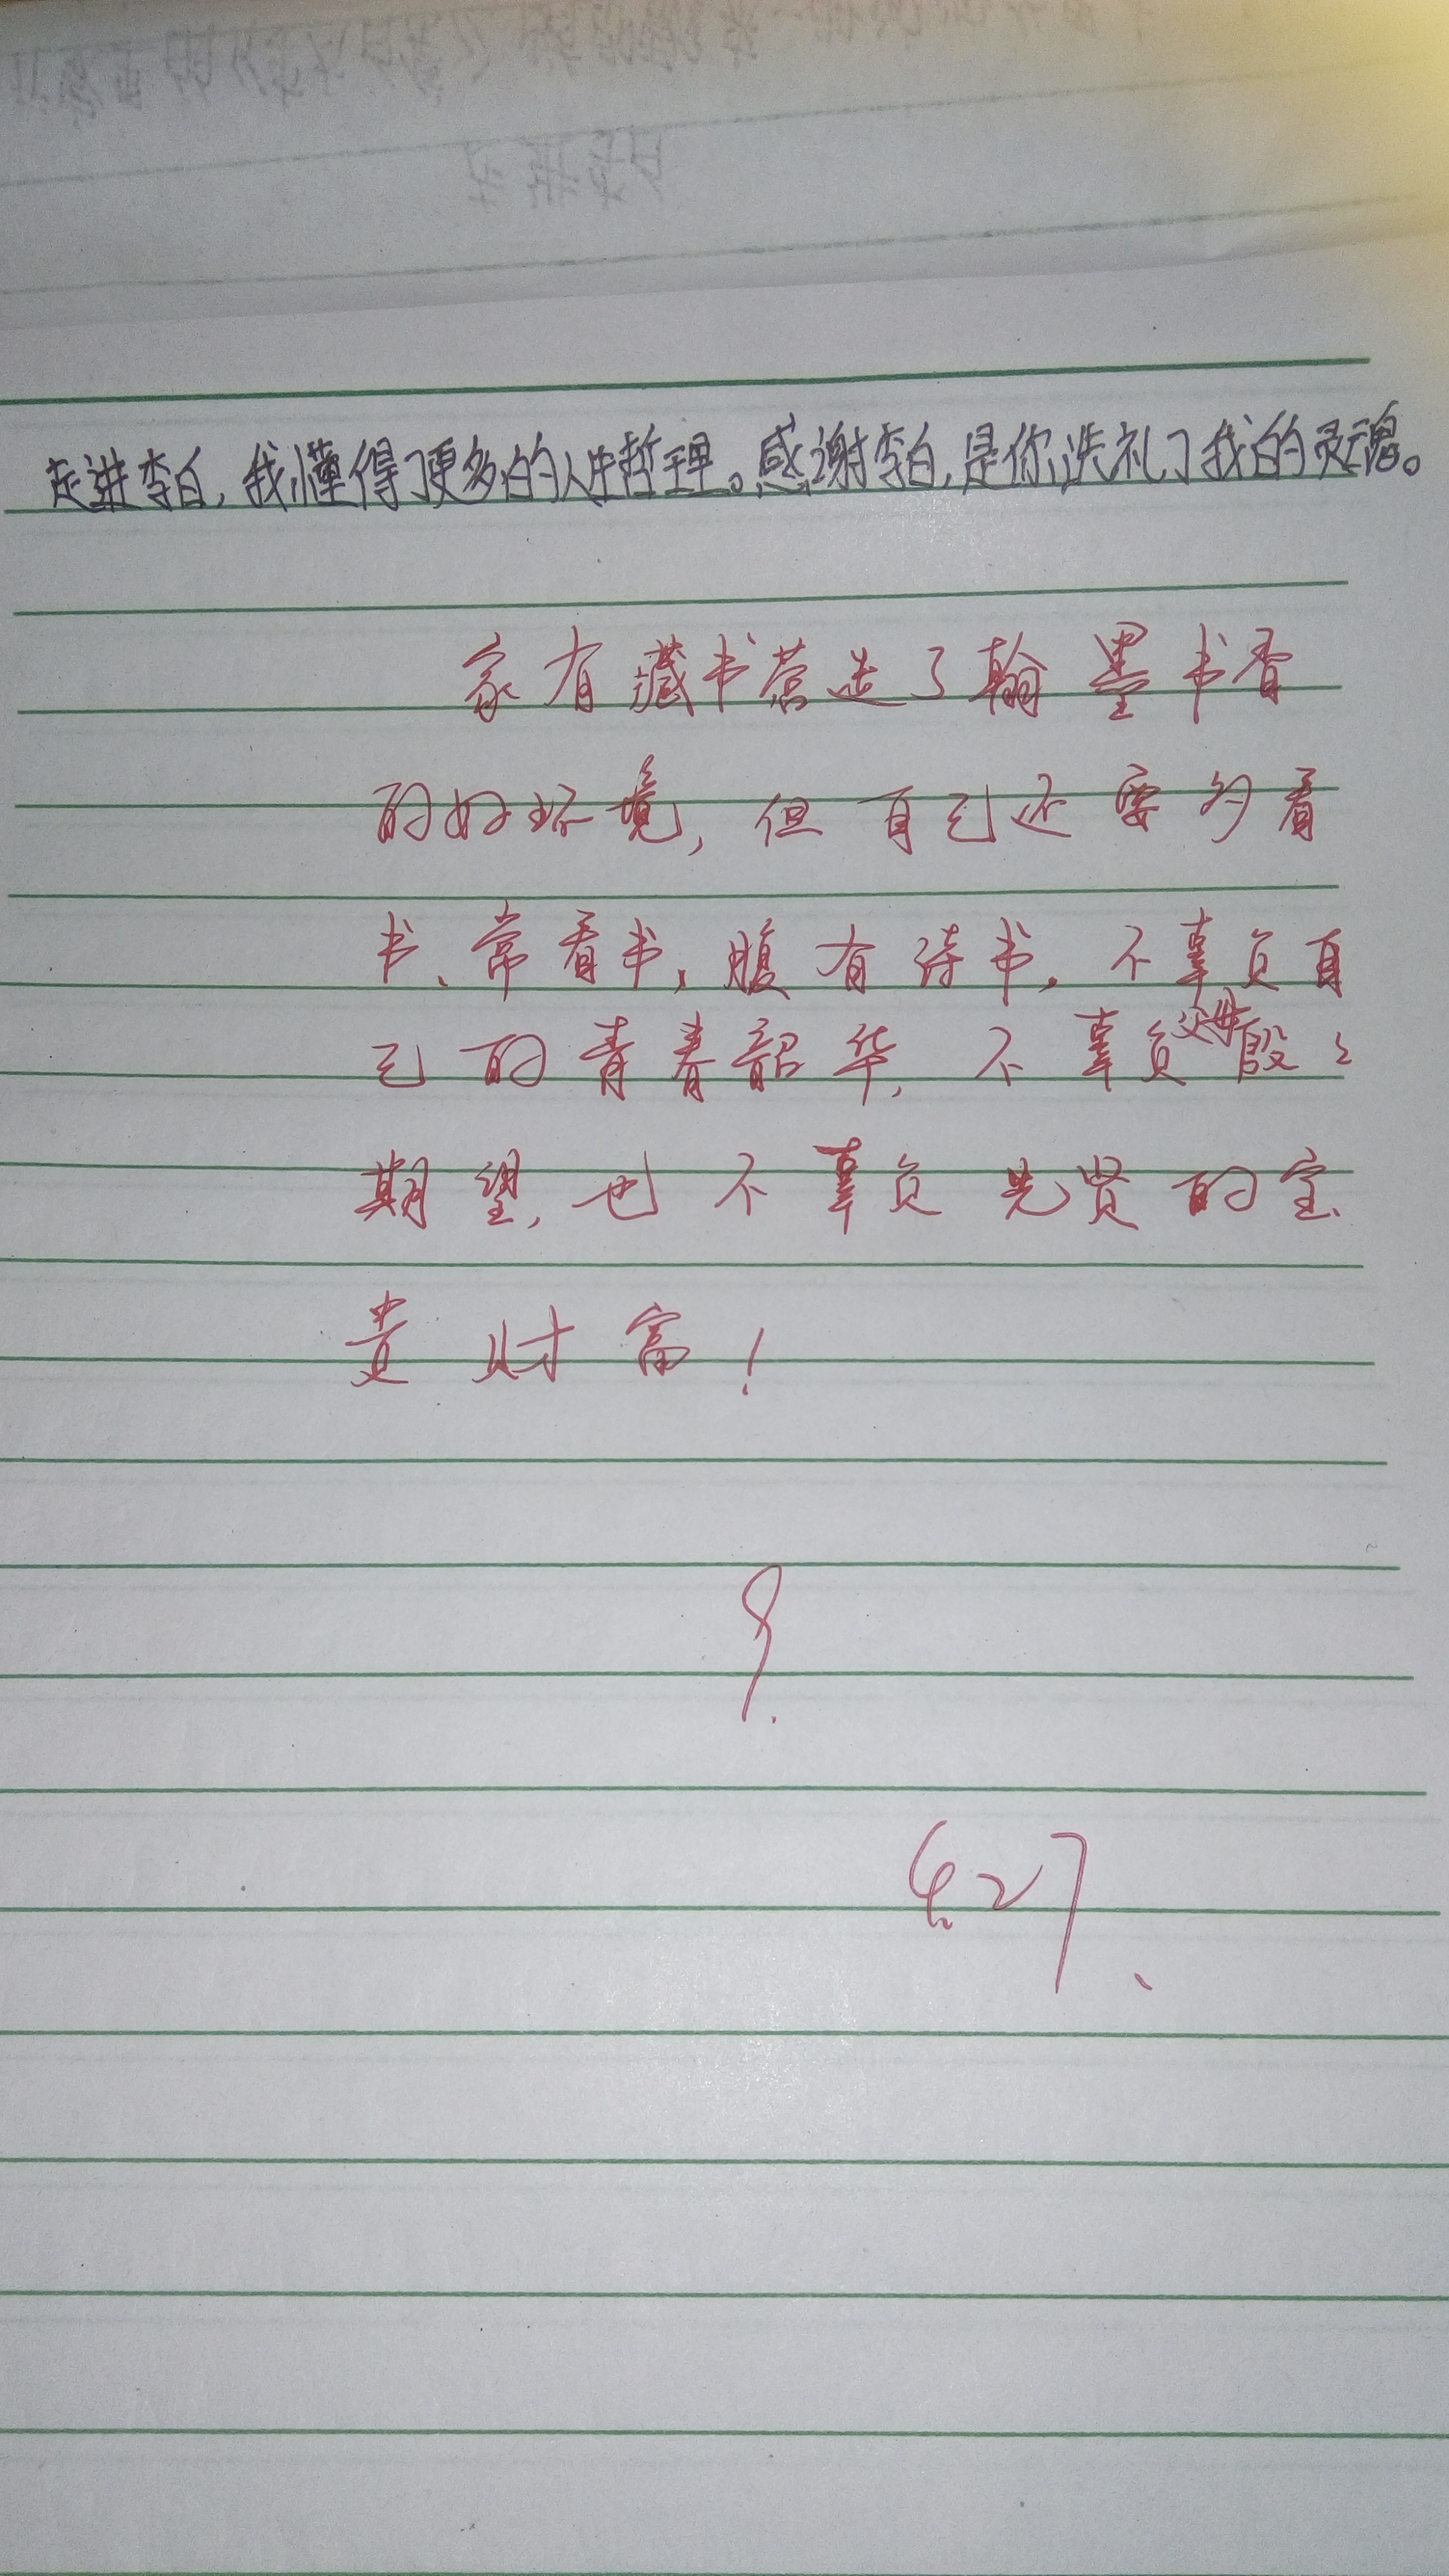 走进李白,我懂得了更多的人生哲理。感谢李白,是你洗礼了我的灵魂。
家有藏书营造了翰墨书香
的好环境,但自己还要多看
书、常看书,腹有诗书,不辜负自
己的青春韶华,不辜负父母殷殷
期望,也不辜负先贤的宝
贵财富!
6.27.